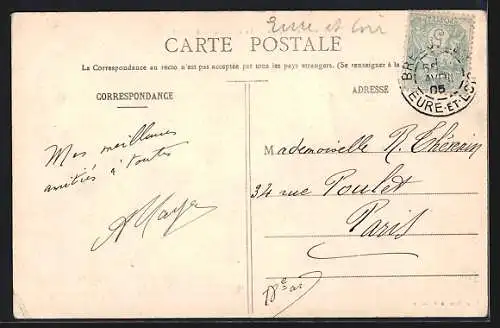 Eure et Loir
CARTE POSTALE
La Correspondance au recto n'est pas acceptée par tous les pays étrangers. (Se renseigner à la
CORRESPONDANCE
ADRESSE
BR
AVRIL
05
EURE-ET-LOIR
Mes meilleures
amitiés à toutes
Mademoiselle R. Thénain
34 rue Poulet
Paris
18e ar.